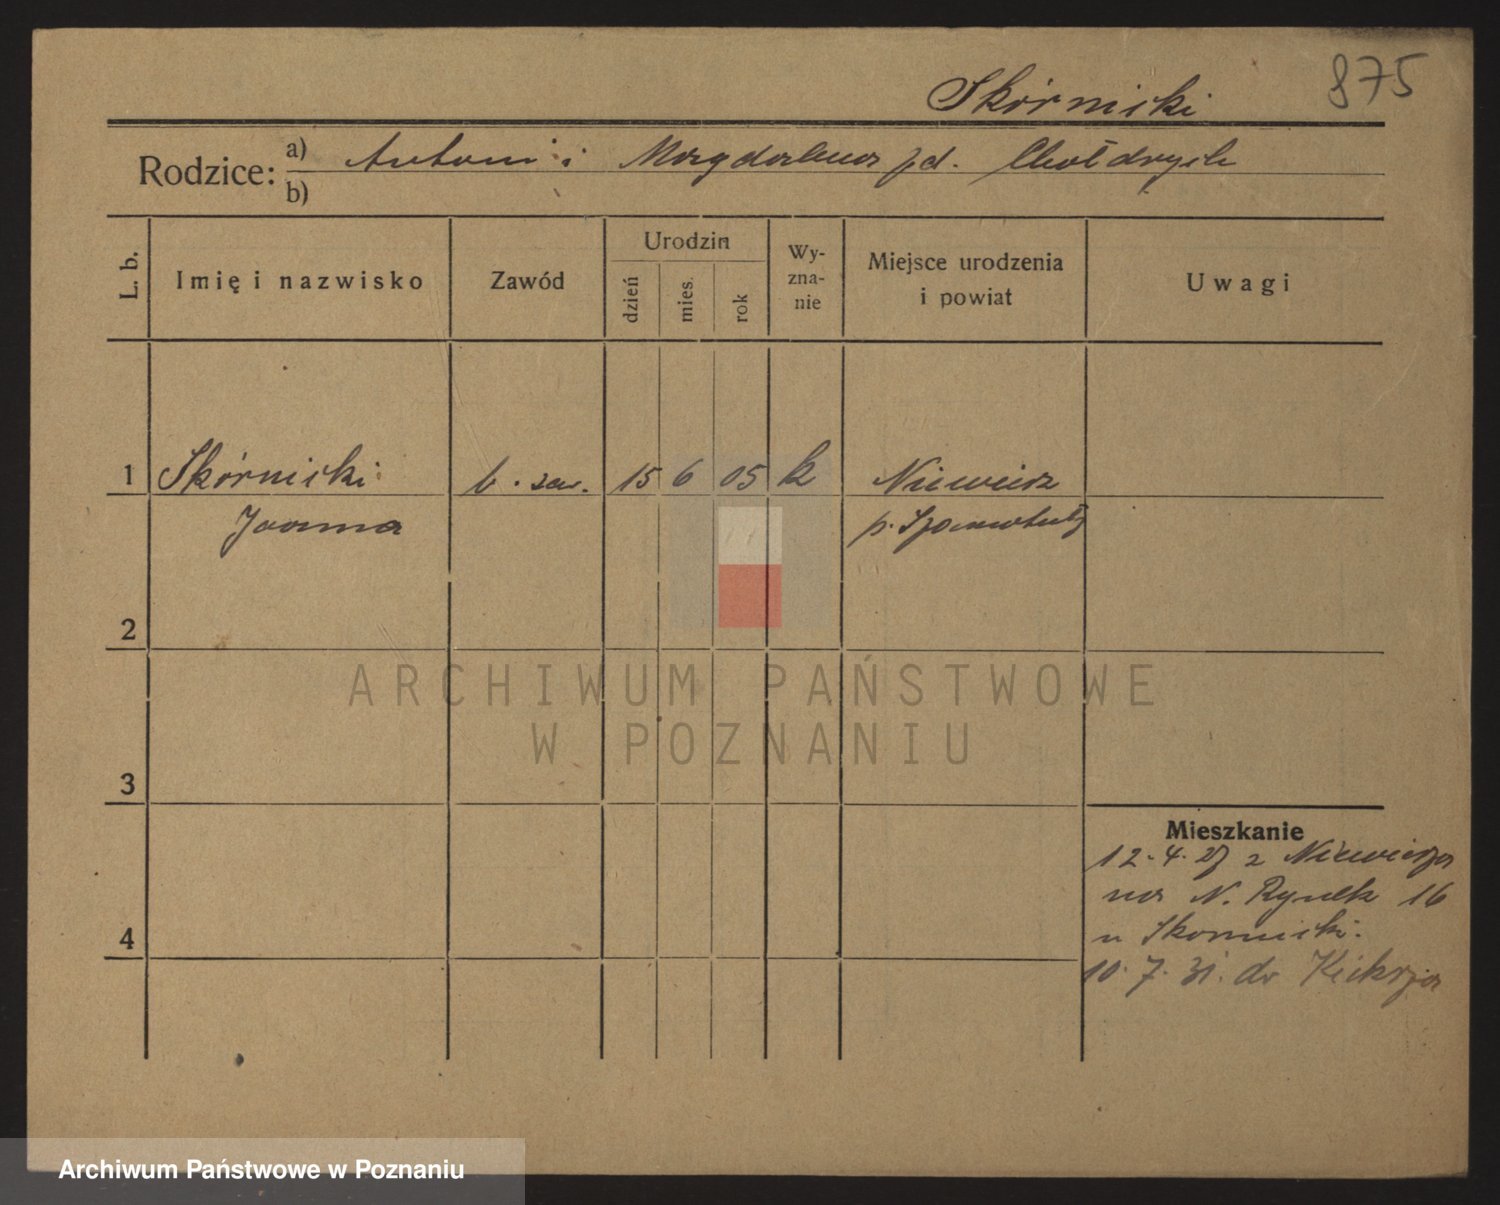 Skórnicki
875
Rodzice: a) Antoni i Magdalena zd.
b)
L. b. Imię i nazwisko Zawód Urodzin dzień mies. rok Wy-zna-nie Miejsce urodzenia i powiat Uwagi
1 Skórnicki b. zaw. 15 6 05 k Niewierz
Joanna p. Szamotuły
2
3
4
Mieszkanie
12. 4. 27 z Niewierza
na N. Rynek 16
u Skornicki.
10. 7. 31. do Kiekrza
ARCHIWUM PAŃSTWOWE
W POZNANIU
Archiwum Państwowe w Poznaniu